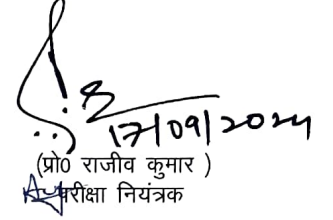 17/09/2024
(प्रो0 राजीव कुमार )
परीक्षा नियंत्रक